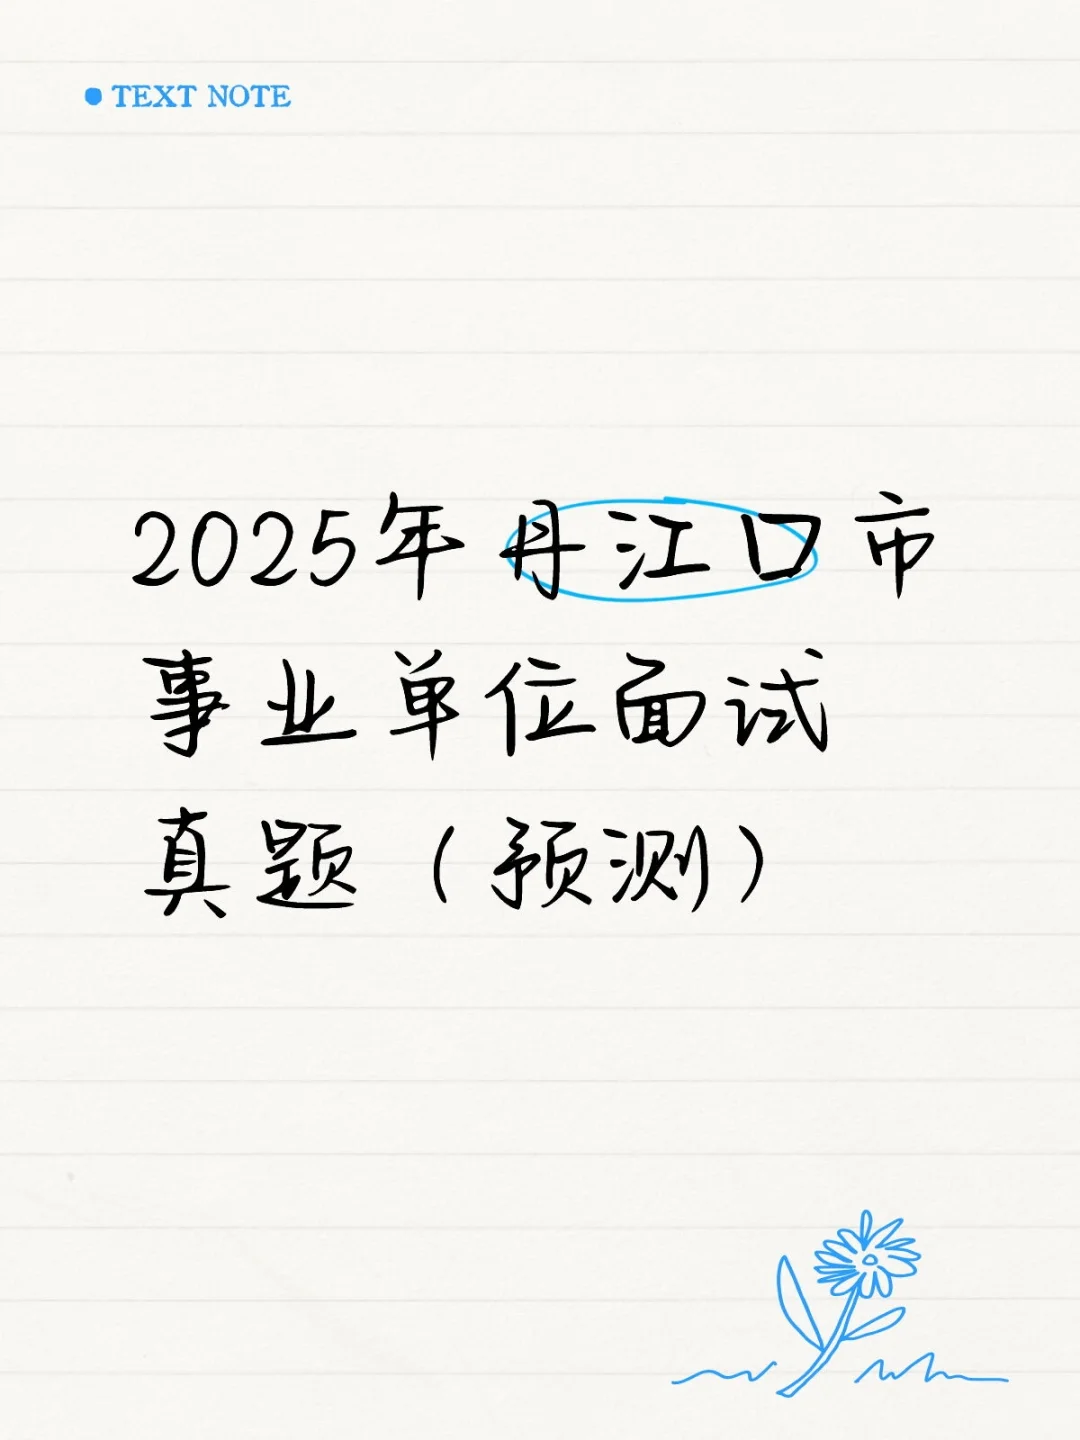 TEXT NOTE
2025年丹江口市
事业单位面试
真题（预测）